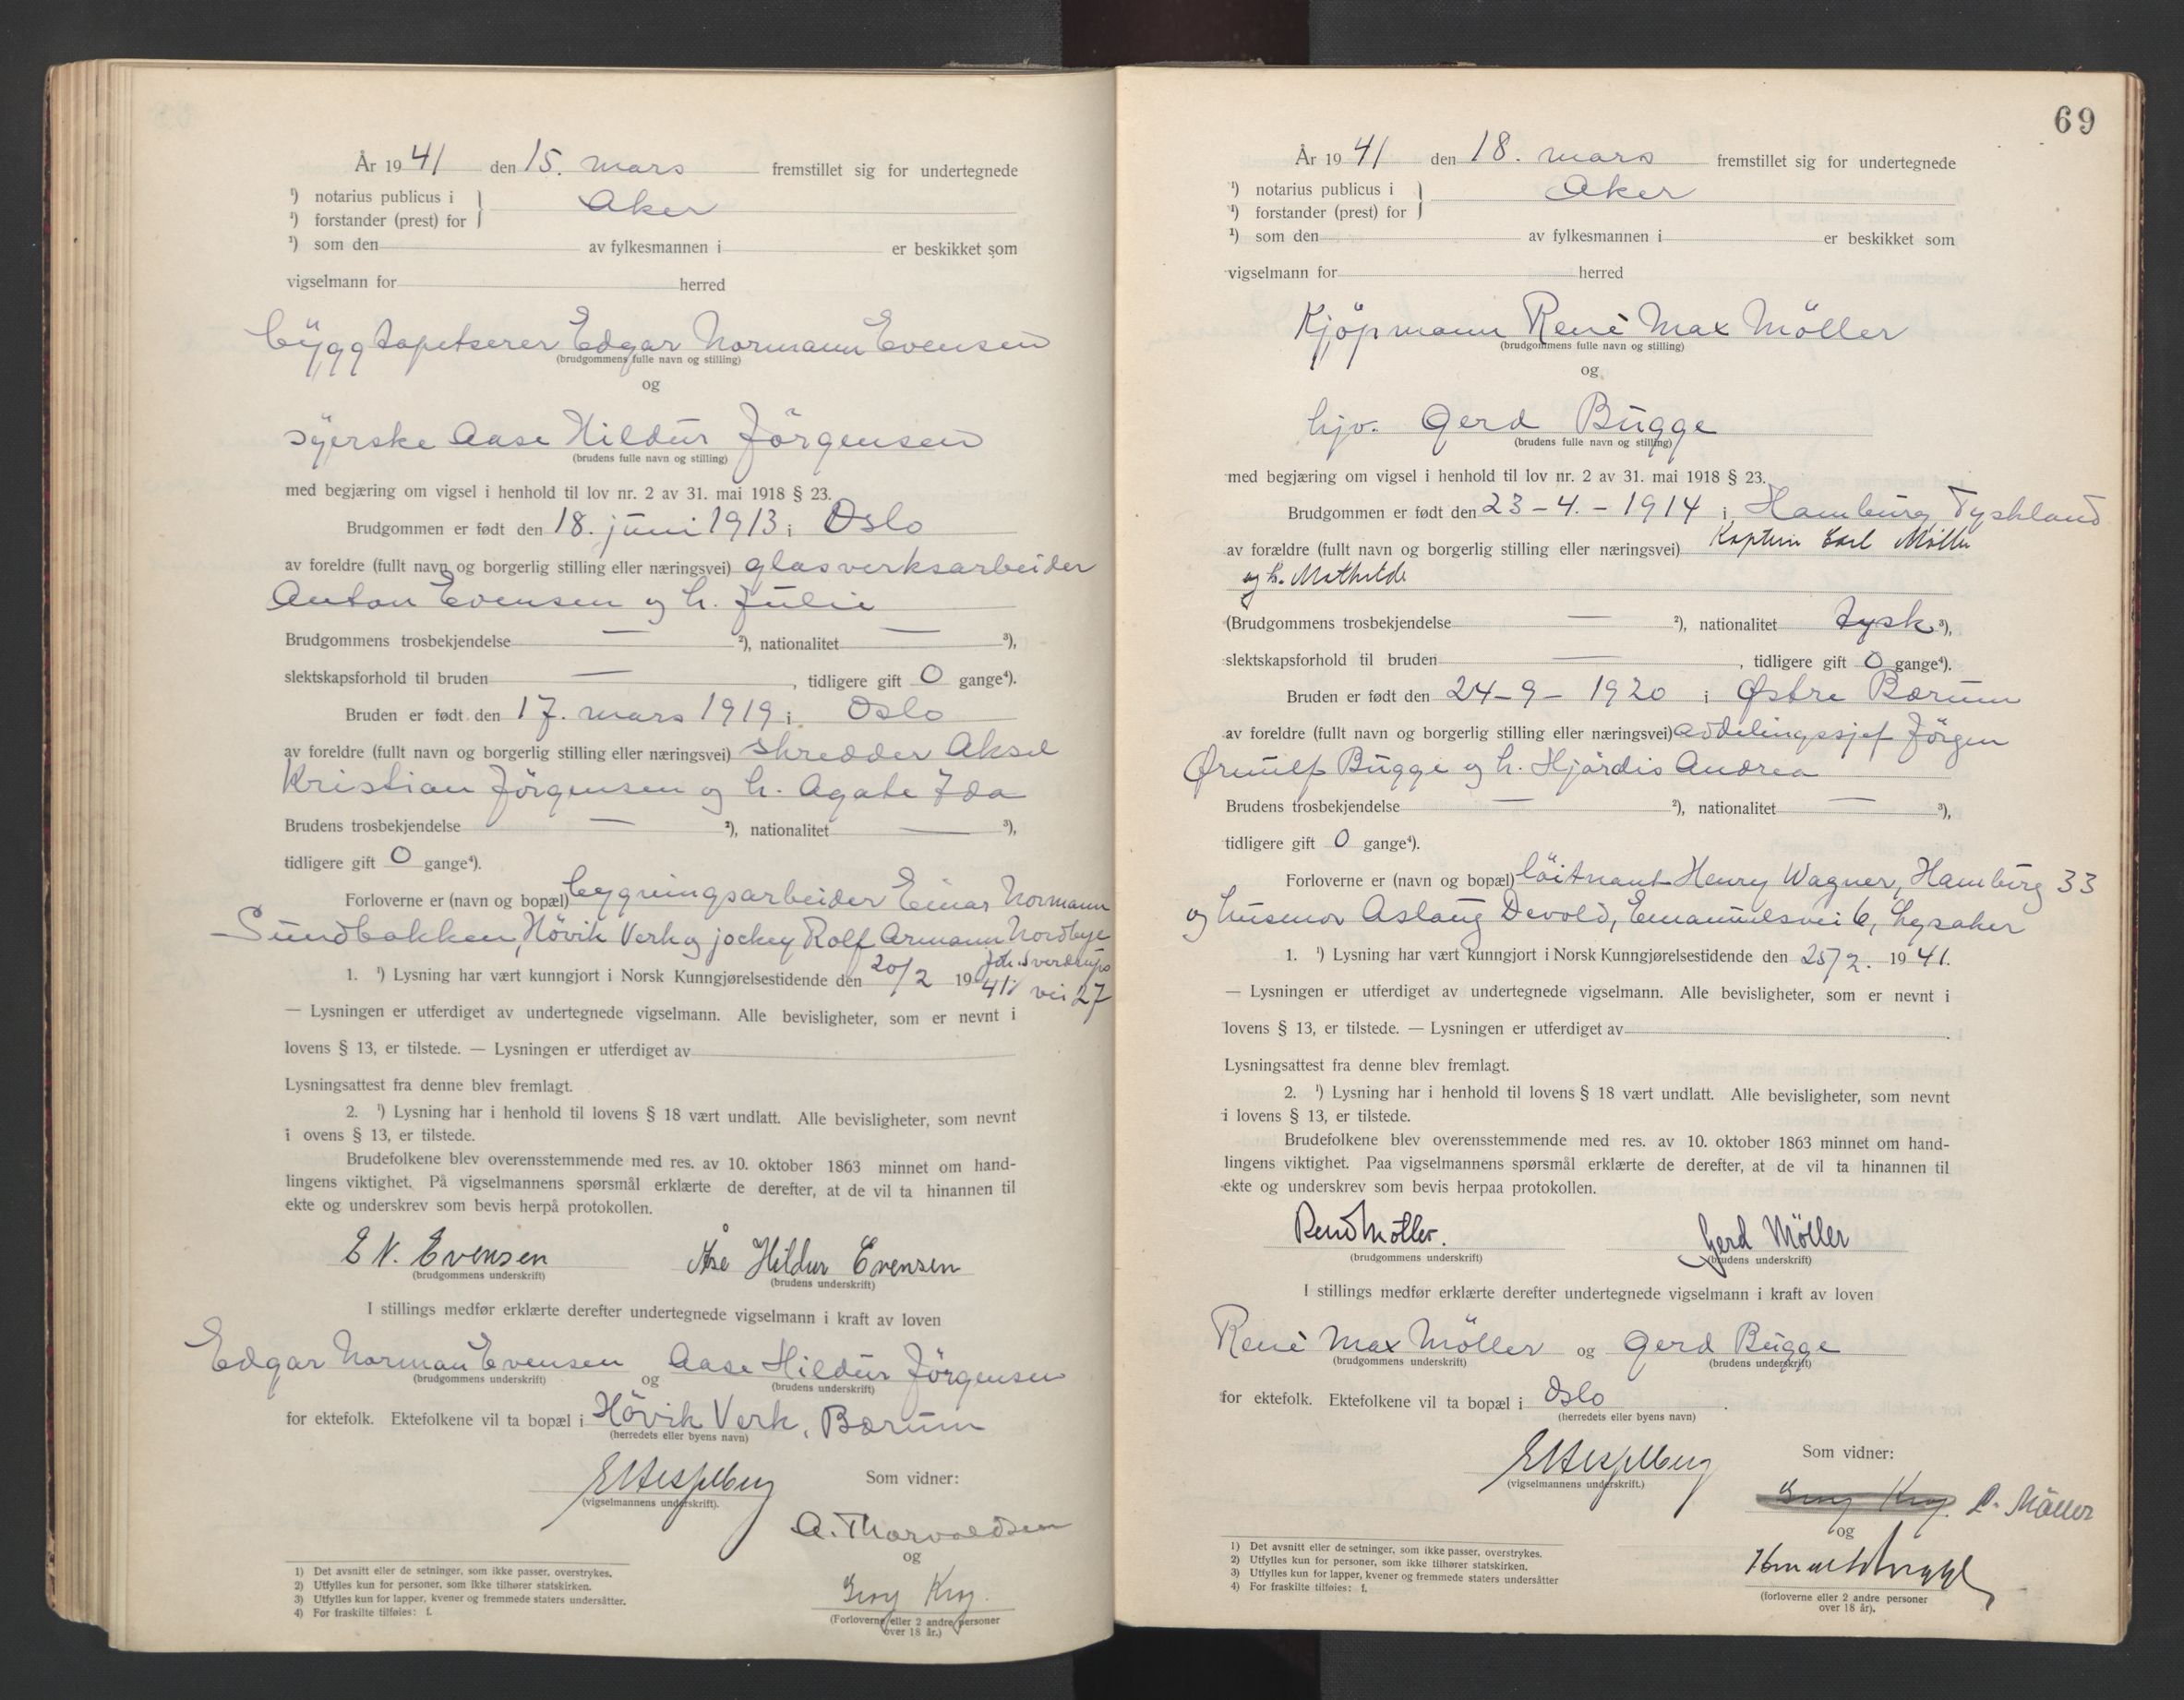 År 1941 den 15. mars fremstillet sig for undertegnede
¹) notarius publicus i } Aker
¹) forstander (prest) for
¹) som den av fylkesmannen i er beskikket som
vigselmann for herred
byggtapetserer Edgar Normann Evensen
(brudgommens fulle navn og stilling)
og
syerske Aase Hildur Jörgensen
(brudens fulle navn og stilling)
med begjæring om vigsel i henhold til lov nr. 2 av 31. mai 1918 § 23.
Brudgommen er født den 18. juni 1913 i Oslo
av foreldre (fullt navn og borgerlig stilling eller næringsvei) glasverksarbeider
Anton Evensen og h. Julie
Brudgommens trosbekjendelse — ²), nationalitet — ³),
slektskapsforhold til bruden — , tidligere gift 0 gange⁴).
Bruden er født den 17. mars 1919 i Oslo
av foreldre (fullt navn og borgerlig stilling eller næringsvei) skredder Aksel
Kristian Jörgensen og h. Agate Ida
Brudens trosbekjendelse — ²), nationalitet — ³),
tidligere gift 0 gange⁴).
Forloverne er (navn og bopæl) bygningsarbeider Einar Normann
Sundbakken, Hövik Verk og jockey Rolf Armann Nordbye
Joh. Sverdrups
1. ¹) Lysning har vært kunngjort i Norsk Kunngjørelsestidende den 20/2 1941. vei 27
— Lysningen er utferdiget av undertegnede vigselmann. Alle bevisligheter, som er nevnt i
lovens § 13, er tilstede. — Lysningen er utferdiget av
Lysningsattest fra denne blev fremlagt.
2. ¹) Lysning har i henhold til lovens § 18 vært undlatt. Alle bevisligheter, som nevnt
i ovens § 13, er tilstede.
Brudefolkene blev overensstemmende med res. av 10. oktober 1863 minnet om hand-
lingens viktighet. På vigselmannens spørsmål erklærte de derefter, at de vil ta hinannen til
ekte og underskrev som bevis herpå protokollen.
E N. Evensen Åse Hildur Evensen
(brudgommens underskrift) (brudens underskrift)
I stillings medfør erklærte derefter undertegnede vigselmann i kraft av loven
Edgar Norman Evensen og Aase Hildur Jörgensen
(brudgommens underskrift) (brudens underskrift)
for ektefolk. Ektefolkene vil ta bopæl i Hövik Verk, Bærum
(herredets eller byens navn)
Som vidner:
(vigselmannens underskrift).
A. Thorvaldsen
og
(Forloverne eller 2 andre personer
over 18 år.)
1) Det avsnitt eller de setninger, som ikke passer, overstrykes.
2) Utfylles kun for personer, som ikke tilhører statskirken.
3) Utfylles kun for lapper, kvener og fremmede staters undersåtter.
4) For fraskilte tilføies: f.
69
År 1941 den 18. mars fremstillet sig for undertegnede
¹) notarius publicus i } Aker
¹) forstander (prest) for
¹) som den av fylkesmannen i er beskikket som
vigselmann for herred
Kjöpmann Renè Max Möller
(brudgommens fulle navn og stilling)
og
hjv. Gerd Bugge
(brudens fulle navn og stilling)
med begjæring om vigsel i henhold til lov nr. 2 av 31. mai 1918 § 23.
Brudgommen er født den 23-4.-1914 i Hamburg Tyskland
av forældre (fullt navn og borgerlig stilling eller næringsvei) Kaptein Carl Möller
og h. Mathilde
(Brudgommens trosbekjendelse — ²), nationalitet tysk ³),
slektskapsforhold til bruden — , tidligere gift 0 gange⁴).
Bruden er født den 24-9-1920 i Østre Bærum
av foreldre (fullt navn og borgerlig stilling eller næringsvei) avdelingssjef Jörgen
Ørnulf Bugge og h. Hjördis Andrea
Brudens trosbekjendelse — ²), nationalitet — ³),
tidligere gift 0 gange⁴).
Forloverne er (navn og bopæl) löitnant Henry Wagner, Hamburg 33
og husmor Aslaug Devold, Emanuelsvei 6, Lysaker
1. ¹) Lysning har vært kunngjort i Norsk Kunngjørelsestidende den 25/2. 1941.
— Lysningen er utferdiget av undertegnede vigselmann. Alle bevisligheter, som er nevnt i
lovens § 13, er tilstede. — Lysningen er utferdiget av
Lysningsattest fra denne blev fremlagt.
2. ¹) Lysning har i henhold til lovens § 18 vært undlatt. Alle bevisligheter, som nevnt
i lovens § 13, er tilstede.
Brudefolkene blev overensstemmende med res. av 10. oktober 1863 minnet om hand-
lingens viktighet. Paa vigselmannens spørsmål erklærte de derefter, at de vil ta hinannen til
ekte og underskrev som bevis herpaa protokollen.
René Möller. Gerd Möller
(brudgommens underskrift) (brudens underskrift)
I stillings medfør erklærte derefter undertegnede vigselmann i kraft av loven
Renè Max Möller og Gerd Bugge
(brudgommens underskrift) (brudens underskrift)
for ektefolk. Ektefolkene vil ta bopæl i Oslo .
(herredets eller byens navn)
Som vidner:
(vigselmannens underskrift.)
Möller
og
(forloverne eller 2 andre personer
over 18 år).
1) Det avsnitt eller de setninger, som ikke passer, overstrykes.
2) Utfylles kun for personer, som ikke tilhører statskirken.
3) Utfylles kun for lapper, kvener og fremmede staters undersåtter
4) For fraskilte tilføies: f.